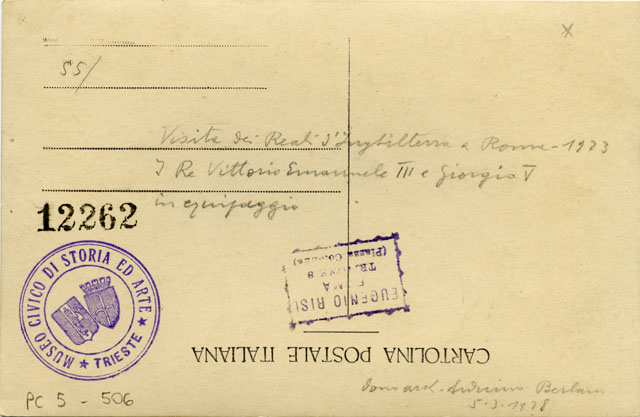 X
55/
Visita dei Reali d'Inghilterra a Roma - 1923
I Re Vittorio Emanuele III e Giorgio V
in equipaggio
12262
MUSEO CIVICO DI STORIA ED ARTE
★ TRIESTE ★
EUGENIO RISI
ROMA
8
(Piazza
CARTOLINA POSTALE ITALIANA
Dono arch. Arduino Berlam
5-3-1928
PC 5 - 506